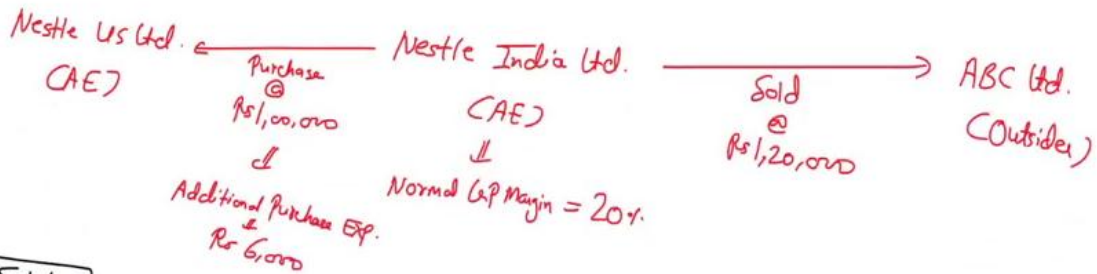 Nestle US Ltd.
(AE)
Purchase
@
Rs1,00,000
Additional Purchase Exp.
Rs 6,000
Nestle India Ltd.
(AE)
Normal GP Margin = 20%
Sold
@
Rs1,20,000
ABC Ltd.
(Outsider)